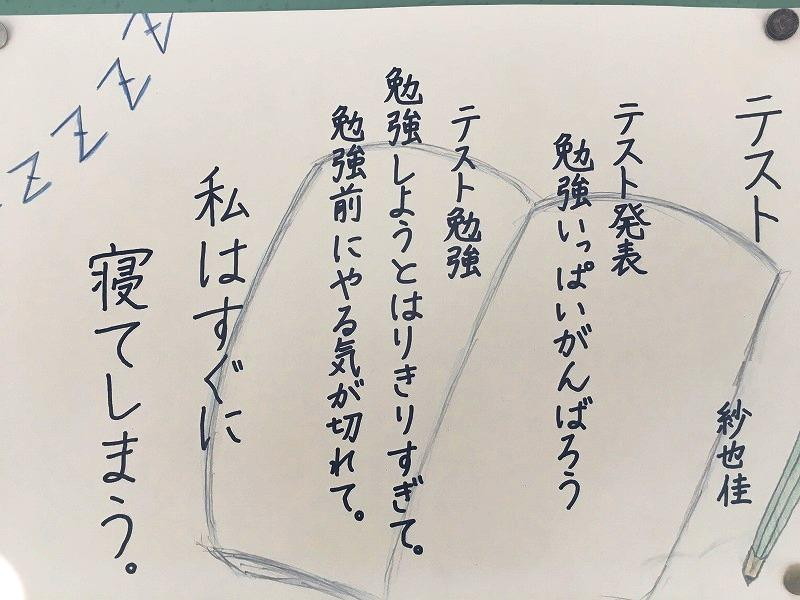 テスト
紗也佳
テスト発表
勉強いっぱいがんばろう
テスト勉強
勉強しようとはりきりすぎて。
勉強前にやる気が切れて。
私はすぐに
寝てしまう。
ZZZZZ